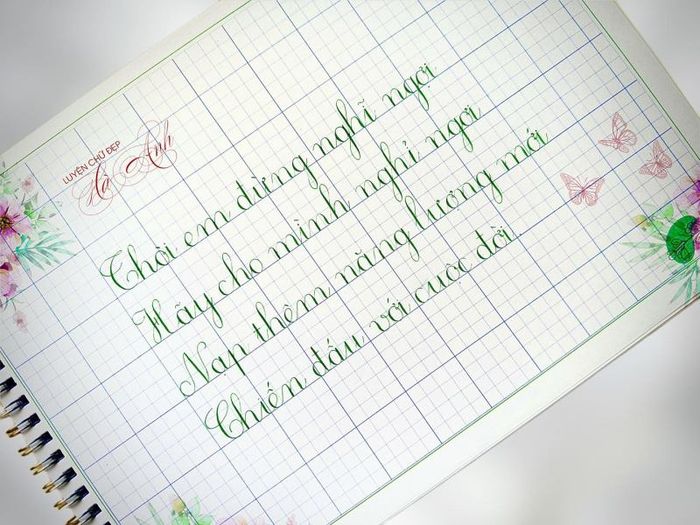 LUYỆN CHỮ ĐẸP
Hà Anh
Thôi em đừng nghĩ ngợi
Hãy cho mình nghỉ ngơi
Nạp thêm năng lượng mới
Chiến đấu với cuộc đời.